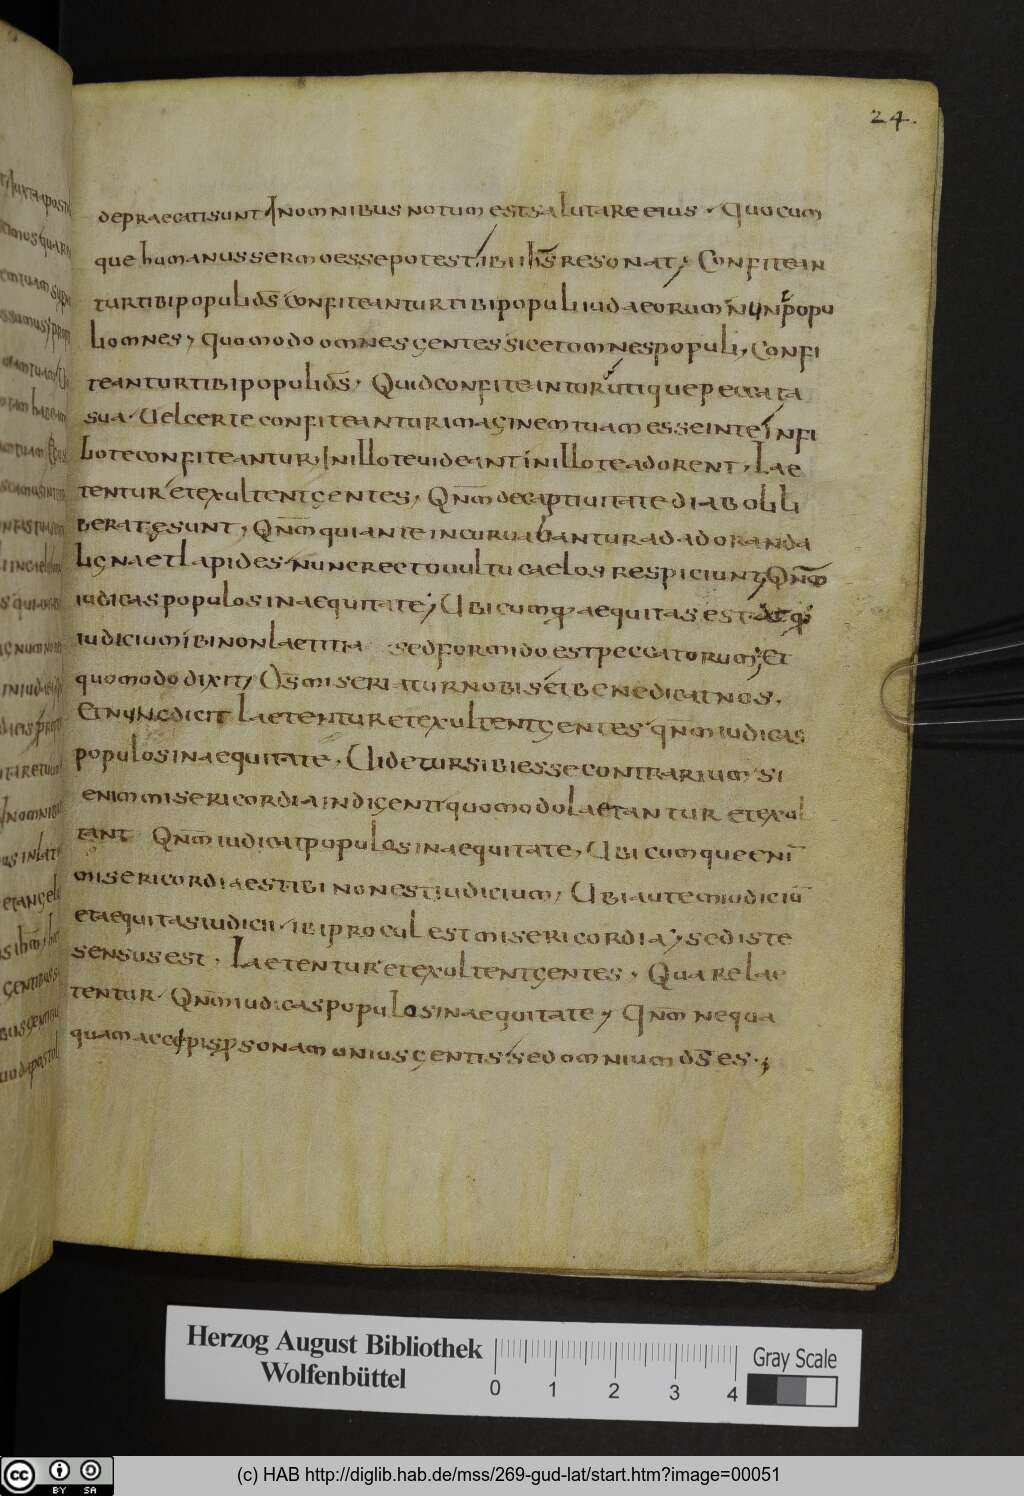 24.
depraecati sunt In omnibus notum est salutare eius · Quocum
que humanus sermo esse potest ibi ih̅s resonat; Confitean
tur tibi populi d̅s confiteantur tibi populi iudaeorum n nun popu
li omnes, quomodo omnes gentes sic et omnes populi, Confi
teantur tibi populi d̅s, Quid confiteantur utique peccata
sua · Uel certe confiteantur imaginem tuam esse in te infi
li o te confiteantur, In illo te uideant in illo te adorent, Lae
tentur et exultent gentes, Qn̅m de captiuitate diaboli li
beratę sunt, Qn̅m qui ante incuruabantur ad adoranda
ligna et lapides nunc recto uultu caelos respiciunt, Qn̅m
iudicas populos in aequitate; Ubicumq aequitas est
iudicium ibi non laetitia sed formido est peccatorum; Et
quomodo dixit, D̅s miseriatur nobis et benedicat nos,
Et nunc dicit Laetentur et exultent gentes qn̅m iudicas
populos in aequitate, Uidetur sibi esse contrarium si
enim misericordia indigent quomodo laetantur et exul
tant Qn̅m iudicat populos in aequitate, Ubicumque eni̅
misericordia est ibi non est iudicium, Ubi autem iudiciu̅
et aequitas iudicii ibi procul est misericordia; sed iste
sensus est, Laetentur et exultent gentes, Quare lae
tentur Qn̅m iudicas populos in aequitate, Qn̅m nequa
quam accepis psonam unius gentis sed omnium d̅s es ·,
Herzog August Bibliothek
Wolfenbüttel
0 1 2 3 4
Gray Scale
cc BY SA
(c) HAB http://diglib.hab.de/mss/269-gud-lat/start.htm?image=00051